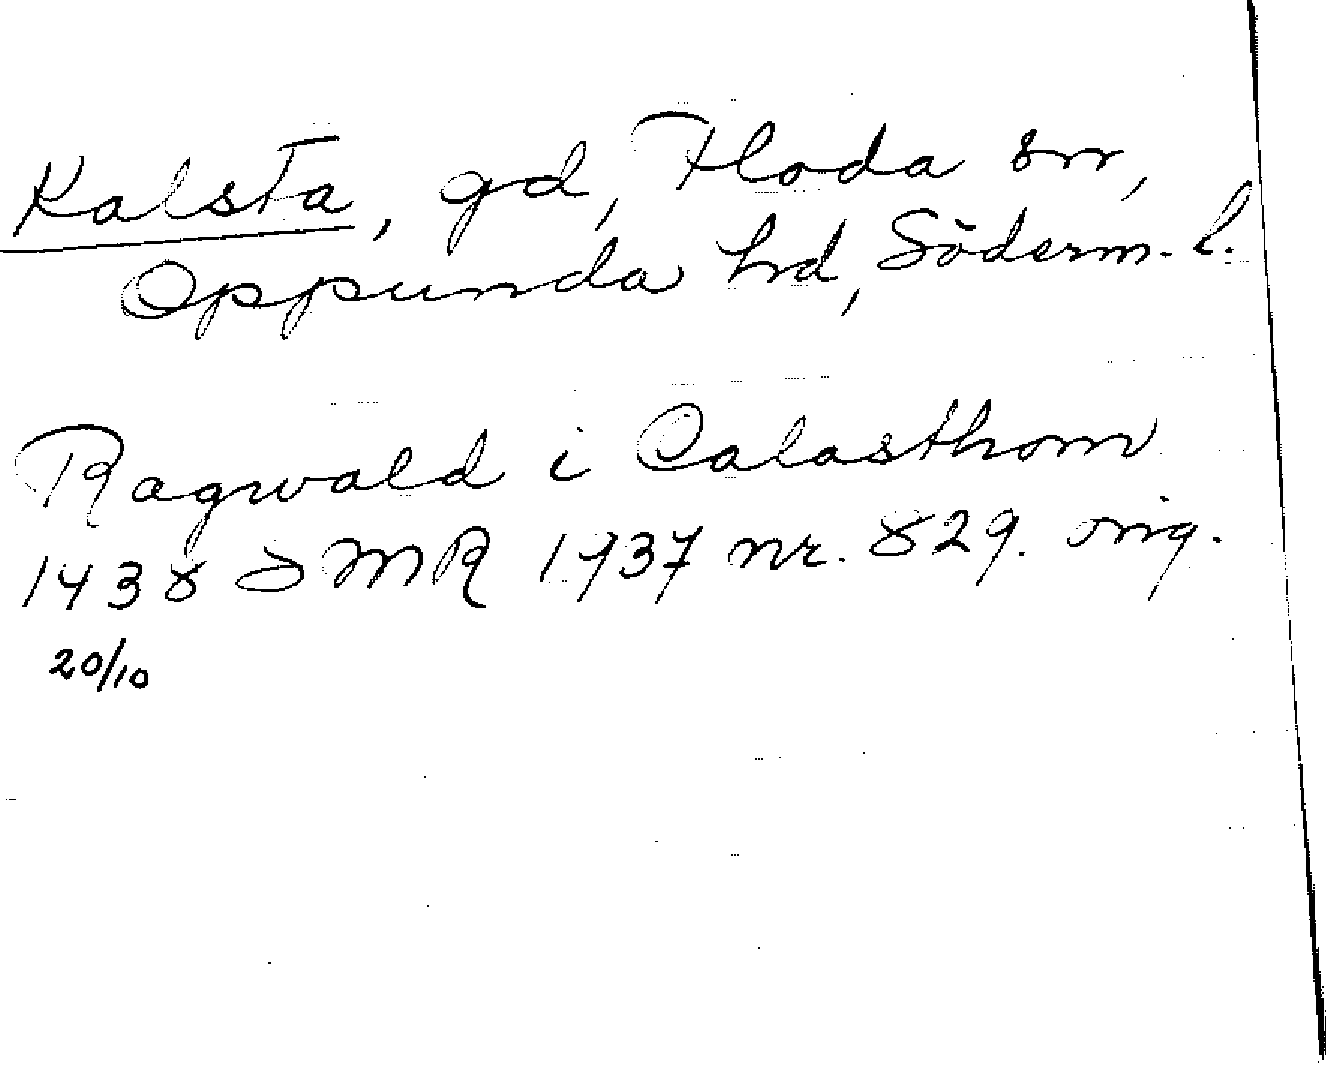 Kalsta, gd, Floda sn,
Oppunda hd, Söderm. l.
Ragwald i Calasthom
1438 SMR 1937 nr. 829. orig.
20/10